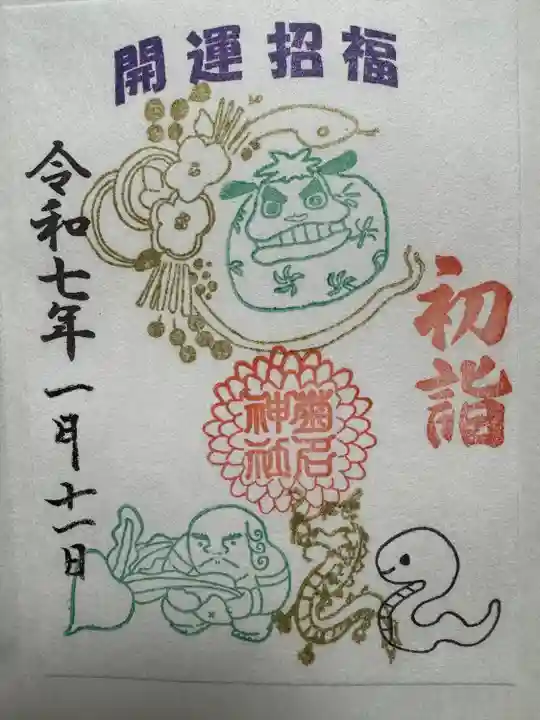 開運招福
初詣
菊名
神社
令和七年一月十一日